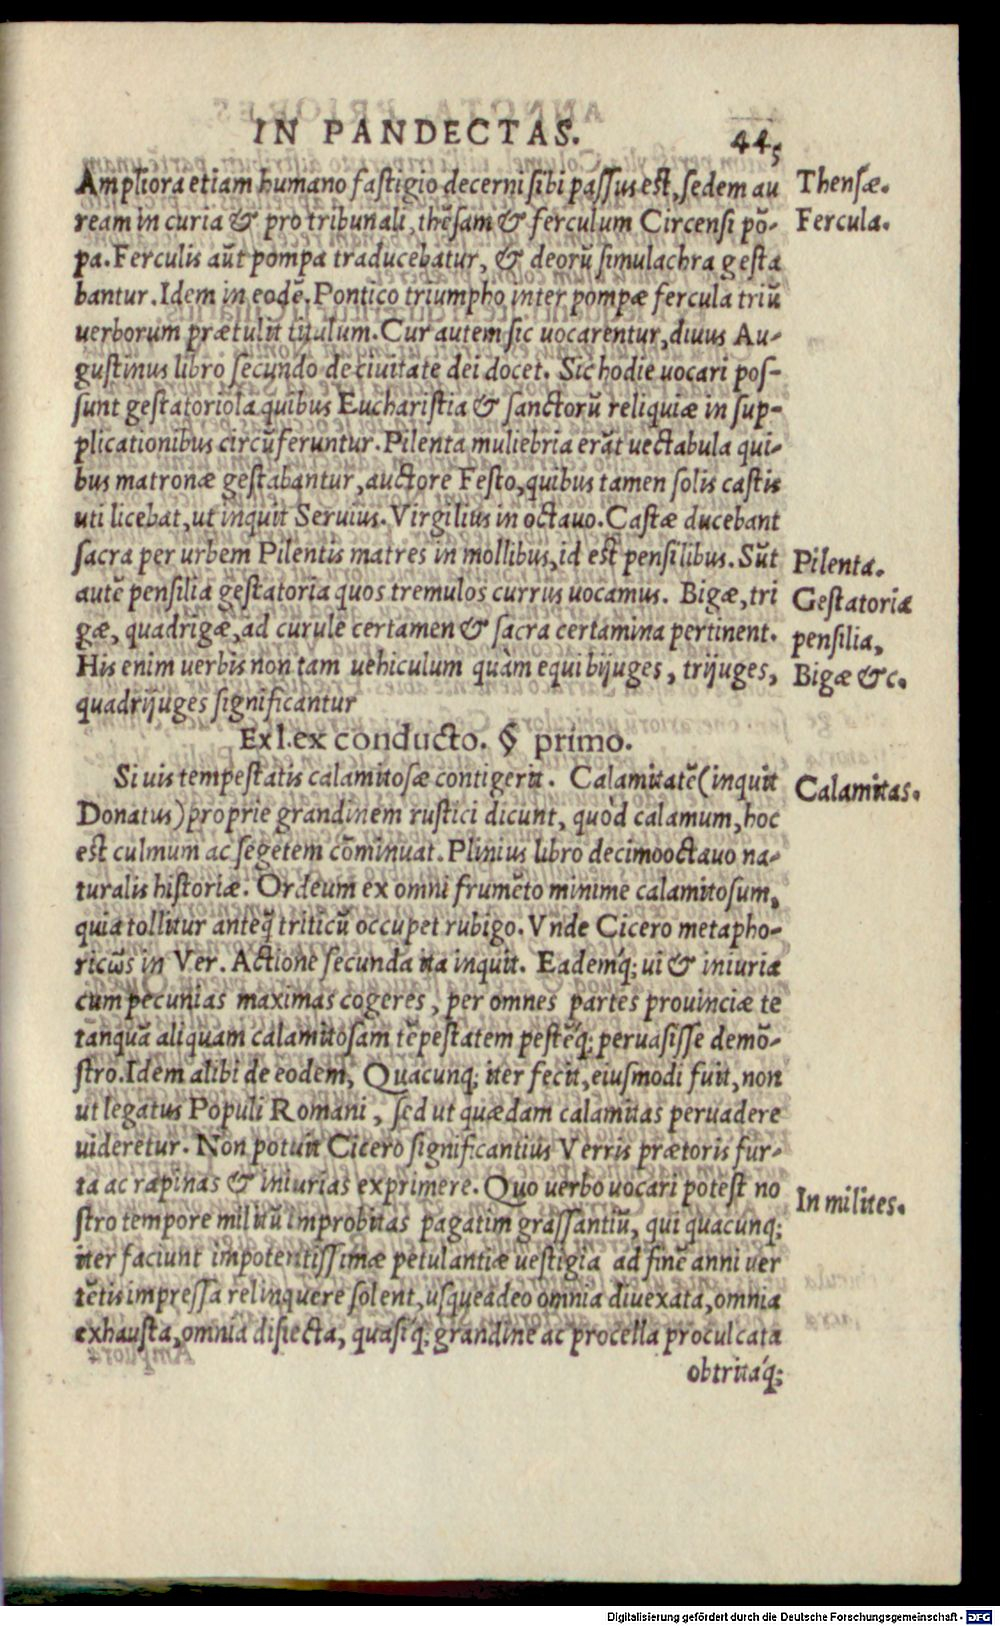 IN PANDECTAS. 445
Ampliora etiam humano fastigio decerni sibi passus est, sedem au
ream in curia & pro tribunali, thēsam & ferculum Circensi pō-
pa. Ferculis aūt pompa traducebatur, & deorū simulachra gesta
bantur. Idem in eodē. Pontico triumpho inter pompæ fercula triū
uerborum prætulit titulum. Cur autem sic uocarentur, diuus Au-
gustinus libro secundo de ciuitate dei docet. Sic hodie uocari pos-
sunt gestatoriola quibus Eucharistia & sanctorū reliquiæ in sup-
plicationibus circūferuntur. Pilenta muliebria erāt uectabula qui-
bus matronæ gestabantur, auctore Festo, quibus tamen solis castis
uti licebat, ut inquit Seruius. Virgilius in octauo. Castæ ducebant
sacra per urbem Pilentis matres in mollibus, id est pensilibus. Sūt
autē pensilia gestatoria quos tremulos currus uocamus. Bigæ, tri
gæ, quadrigæ, ad curule certamen & sacra certamina pertinent.
His enim uerbis non tam uehiculum quàm equi bijuges, trijuges,
quadrijuges significantur
Thensæ.
Fercula.
Pilenta.
Gestatoria
pensilia,
Bigæ &c.
Ex l. ex conducto. § primo.
Si uis tempestatis calamitosæ contigerit. Calamitatē (inquit
Donatus) proprie grandinem rustici dicunt, quòd calamum, hoc
est culmum ac segetem cōminuat. Plinius libro decimooctauo na-
turalis historiæ. Ordeum ex omni frumēto minime calamitosum,
quia tollitur anteq̃ triticū occupet rubigo. Vnde Cicero metapho-
ricῶs in Ver. Actione secunda ita inquit. Eademq́; ui & iniuria
cum pecunias maximas cogeres, per omnes partes prouinciæ te
tanquā aliquam calamitosam tēpestatem pestēq́; peruasisse demō-
stro. Idem alibi de eodem, Quacunq; iter fecit, eiusmodi fuit, non
ut legatus Populi Romani, sed ut quædam calamitas peruadere
uideretur. Non potuit Cicero significantius Verris prætoris fur-
ta ac rapinas & iniurias exprimere. Quo uerbo uocari potest no
stro tempore militū improbitas pagatim grassantiū, qui quacunq;
iter faciunt impotentissimæ petulantiæ uestigia ad finē anni uer
tētis impressa relinquere solent, usqueadeo omnia diuexata, omnia
exhausta, omnia disiecta, quasiq́. grandine ac procella proculcata
obtritaq́;
Calamitas.
In milites.
Digitalisierung gefördert durch die Deutsche Forschungsgemeinschaft - DFG